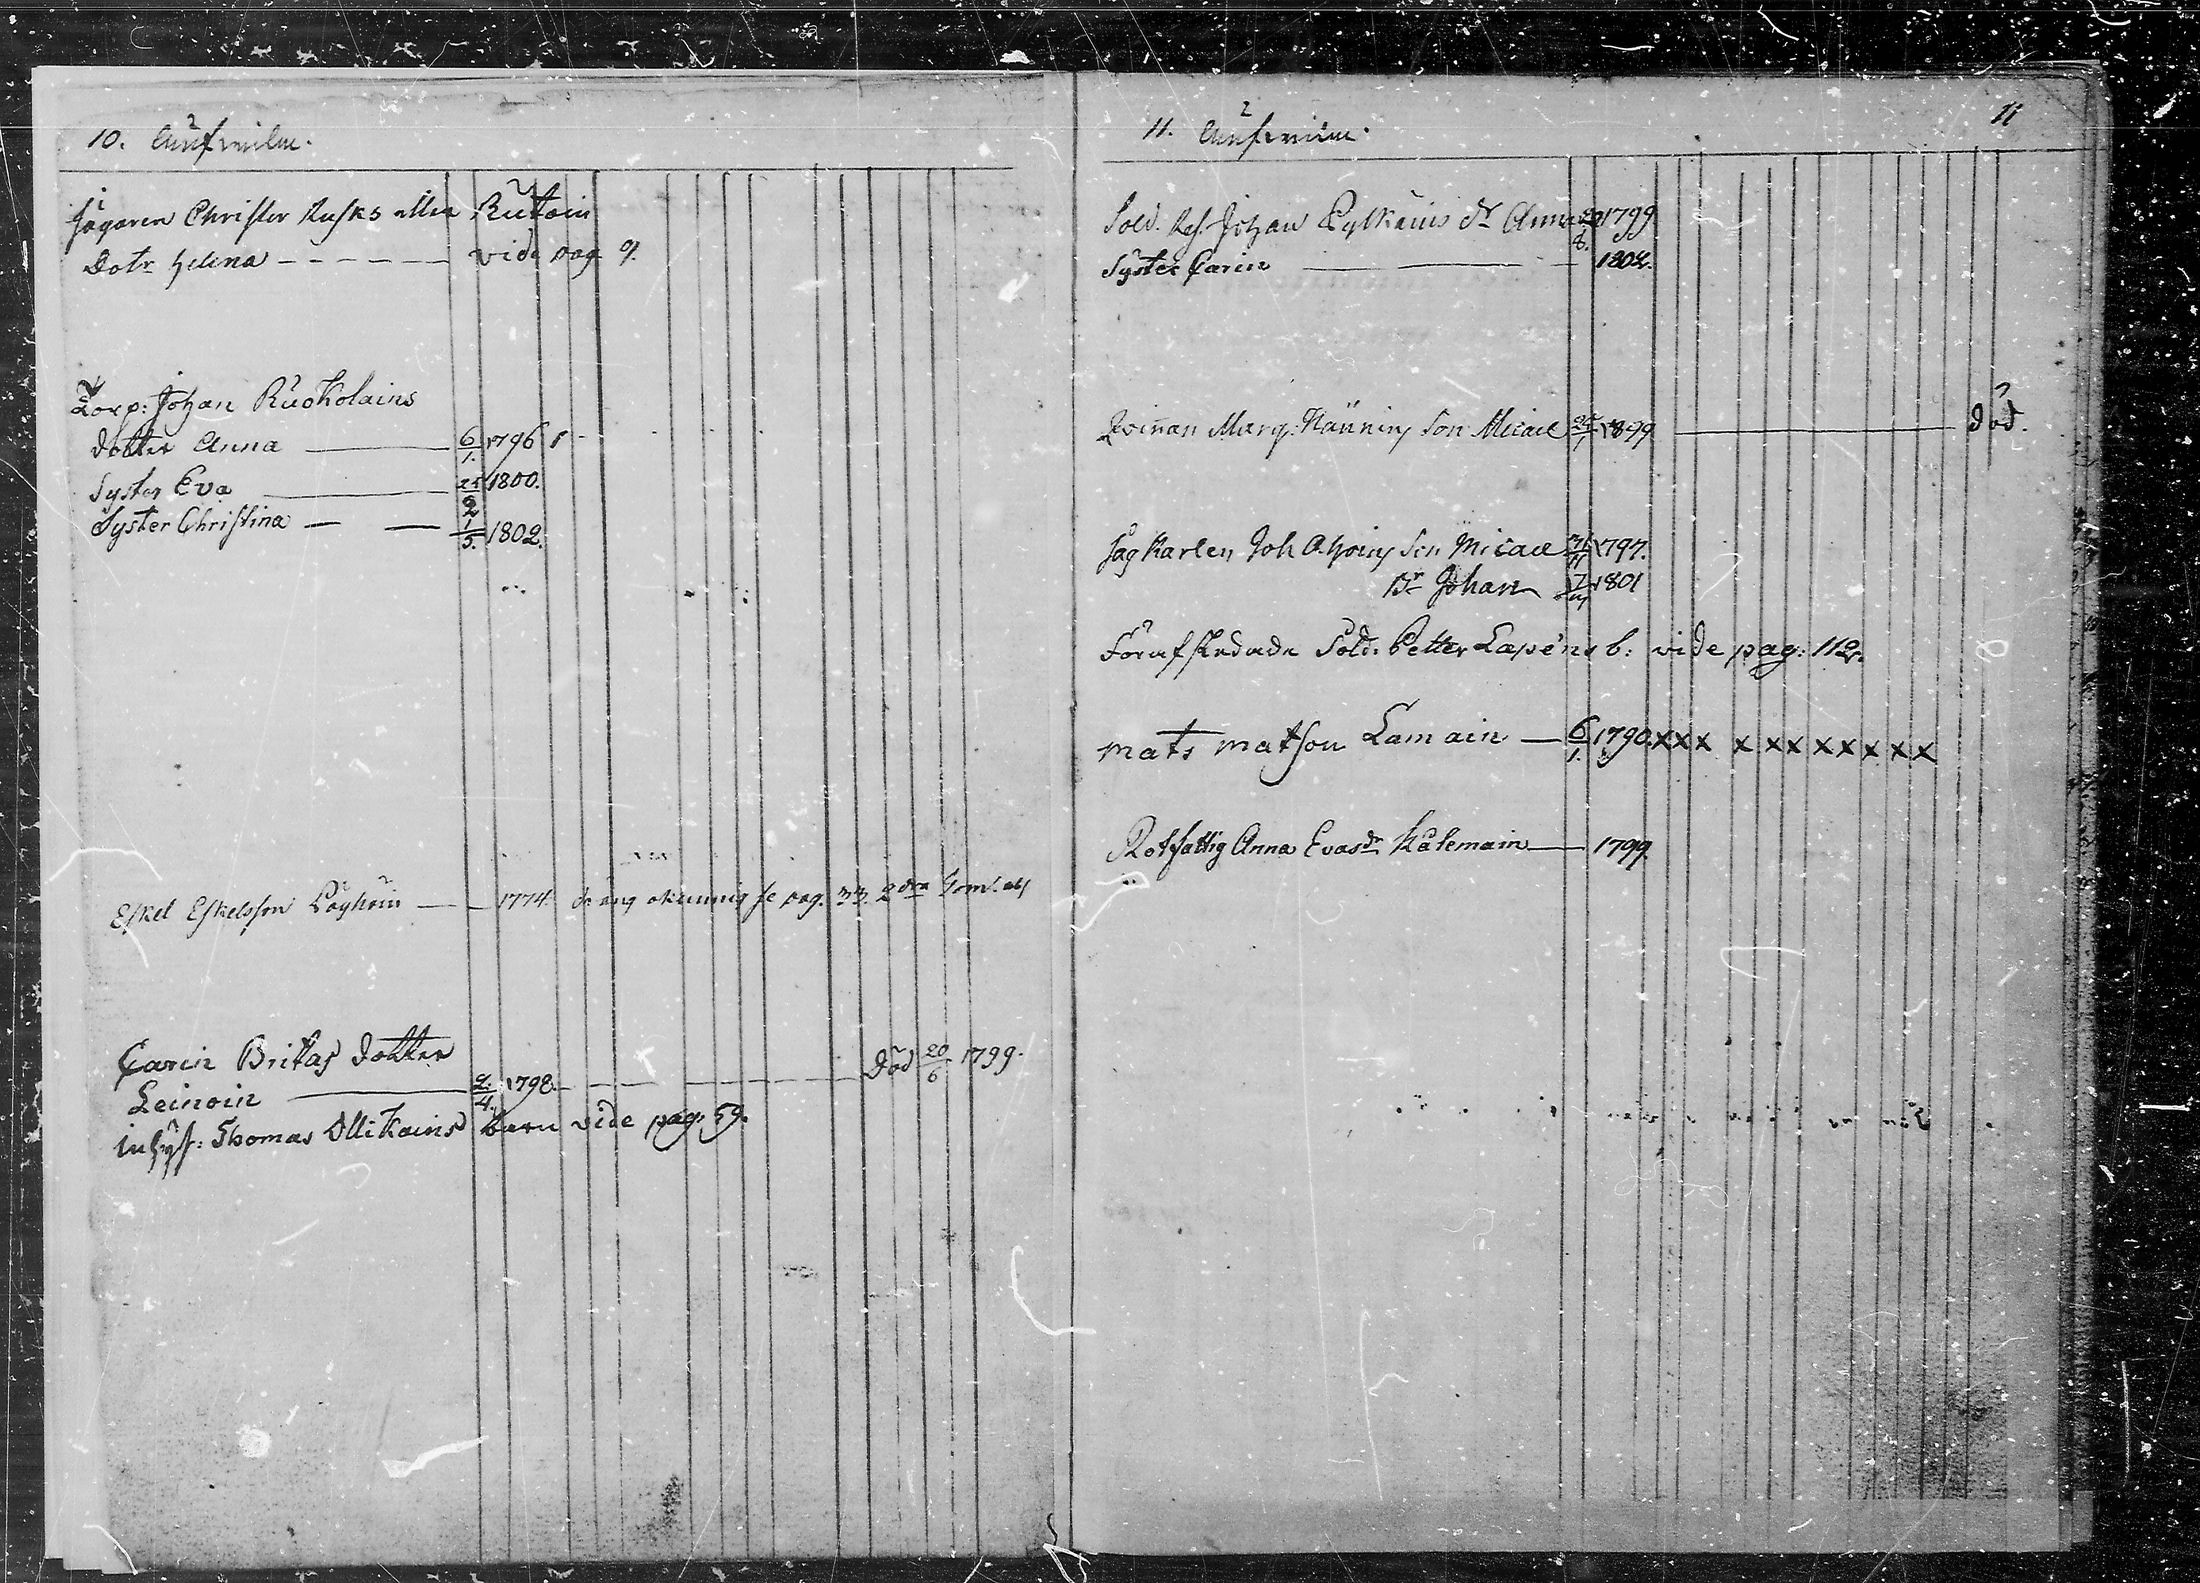 10.
Sågaren Christer Rusks eller Rutoin
Dotr Helena - - - - - vide pag 9.
Torp: Johan Ruokolains
dotter Anna — 6/1. 1796
Syster Eva — 25/2 1800.
Syster Christina — — 1/5. 1802.
Eskel Eskelsson — 1774. okunnig se pag. 33. 2dra
Carin Britas dotter
Leinoin — 2/4. 1798. — Död 20/6 1799.
inhys: Thomas Ollikains barn vide pag. 59.
11. 11
Sold. Joh. Johan Pylkäins dr Anna 1799
Syster Carin — 1802.
Qvinnan Marg: Hännin, son Micael 1899 — död.
Såg Karlen Joh son Micael 1797.
Br Johan 1801
Förafskedade Sold. Petter Lapéns b: vide pag: 112.
Mats Matson Lamain — 6/1. 1790. x x x x x x x x x x x
Rotfattig Anna Evasdr Kälemain — 1799.